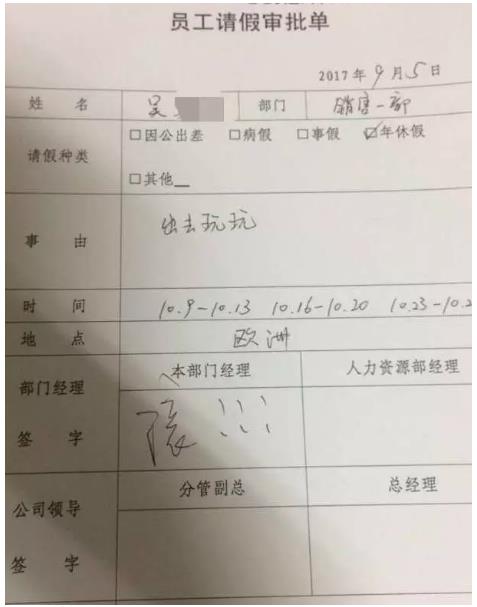 员工请假审批单
2017年9月5日
姓 名 吴 部门 销售一部
请假种类 □因公出差 □病假 □事假 ☑年休假
□其他__
事 由 出去玩玩
时 间 10.9-10.13 10.16-10.20 10.23-10.2
地 点 欧洲
部门经理 本部门经理 人力资源部经理
签 字 !!!
公司领导 分管副总 总经理
签 字